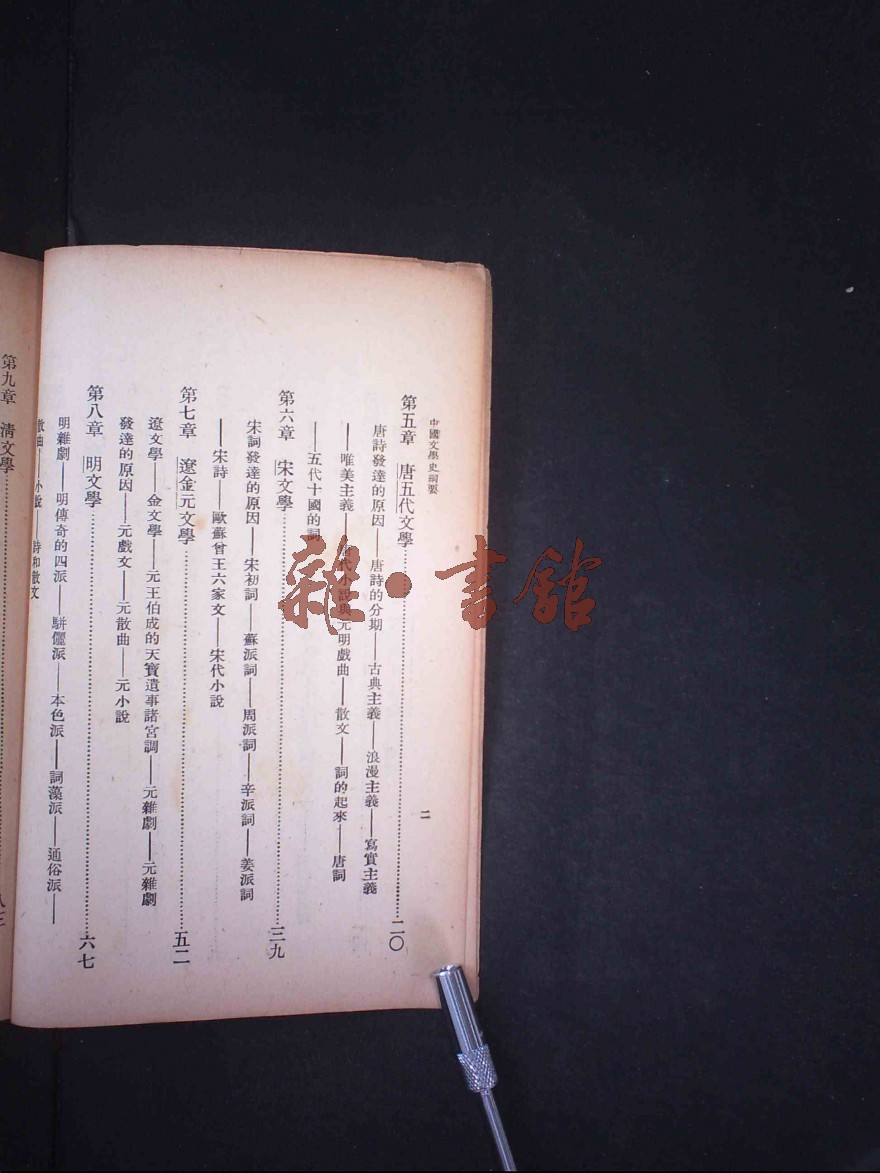 中國文學史綱要
二
第五章 唐五代文學…………二〇
唐詩發達的原因——唐詩的分期——古典主義——浪漫主義——寫實主義
——唯美主義——唐代小說與元明戲曲——散文——詞的起來——唐詞
——五代十國的詞
第六章 宋文學…………三九
宋詞發達的原因——宋初詞——蘇派詞——周派詞——辛派詞——姜派詞
——宋詩——歐蘇曾王六家文——宋代小說
第七章 遼金元文學…………五二
遼文學——金文學——元王伯成的天寶遺事諸宮調——元雜劇——元雜劇
發達的原因——元戲文——元散曲——元小說
第八章 明文學…………六七
明雜劇——明傳奇的四派——駢儷派——本色派——詞藻派——通俗派——
散曲——小說——詩和散文
第九章 清文學…………八三
雜·書館